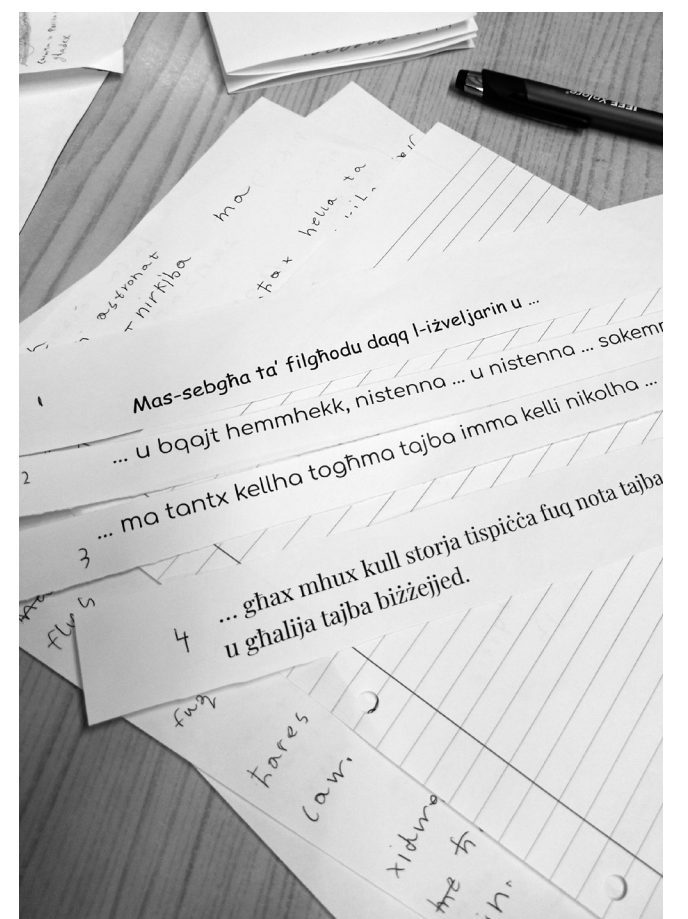 għadex
IEEE Xplore
ma
hella ta
astronat
nirkiba
ħax
1 Mas-sebgħa ta' filgħodu daqq l-iżveljarin u ...
2 ... u bqajt hemmhekk, nistenna ... u nistenna ... sakemm
3 ... ma tantx kellha togħma tajba imma kelli nikolha ...
4 ... għax mhux kull storja tispiċċa fuq nota tajba
u għalija tajba biżżejjed.
fuq
ħares
caw.
xidma